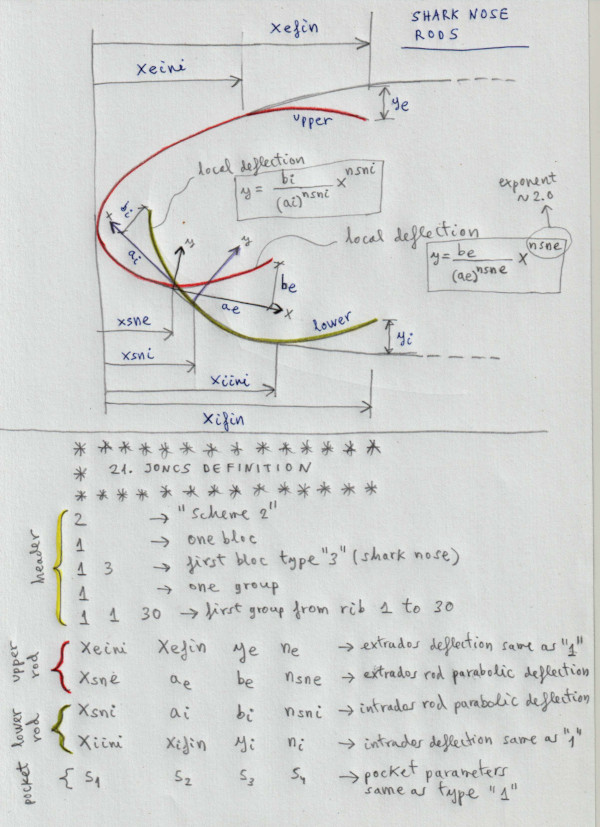 SHARK NOSE
RODS
xefin
xeini
ye
upper
local deflection
y = bi / (ai)^nsni x^nsni
exponent
~ 2.0
bi
x
ai
y
y
local deflection
y = be / (ae)^nsne x^nsne
x
be
ae
x
xsne
lower
xsni
yi
xiini
xifin
* * * * * * * * * * * * * *
* 21. JONCS DEFINITION
* * * * * * * * * * * * * *
header
2 → "scheme 2"
1 → one bloc
1 3 → first bloc type "3" (shark nose)
1 → one group
1 1 30 → first group from rib 1 to 30
upper rod
xeini xefin ye ne → extrados deflection same as "1"
xsne ae be nsne → extrados rod parabolic deflection
lower rod
xsni ai bi nsni → intrados rod parabolic deflection
xiini xifin yi ni → intrados deflection same as "1"
pocket
{ s1 s2 s3 s4 → pocket parameters
same as type "1"